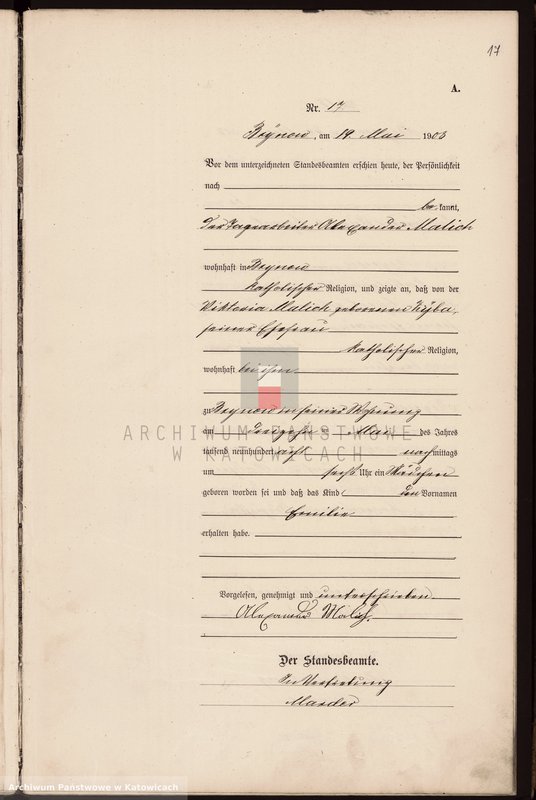 17
A.
Nr. 17
Boÿnow, am 19 Mai 1908
Vor dem unterzeichneten Standesbeamten erschien heute, der Persönlichkeit
nach
be kannt,
der Tagearbeiter Alexander Malich
wohnhaft in Boynow
katholischer Religion, und zeigte an, daß von der
Viktoria Malich geborenen Kÿba,
seiner Ehefrau
katholischer Religion,
wohnhaft bei ihm
zu Boynow in seiner Wohnung
am dreizehn ten Mai des Jahres
tausend neunhundert acht nach mittags
um sechs Uhr ein Mädchen
geboren worden sei und daß das Kind den Vornamen
Emilie
erhalten habe.
Vorgelesen, genehmigt und unterschrieben.
Alexander Malich.
Der Standesbeamte.
In Vertretung
ARCHIWUM PAŃSTWOWE
W KATOWICACH
Archiwum Państwowe w Katowicach